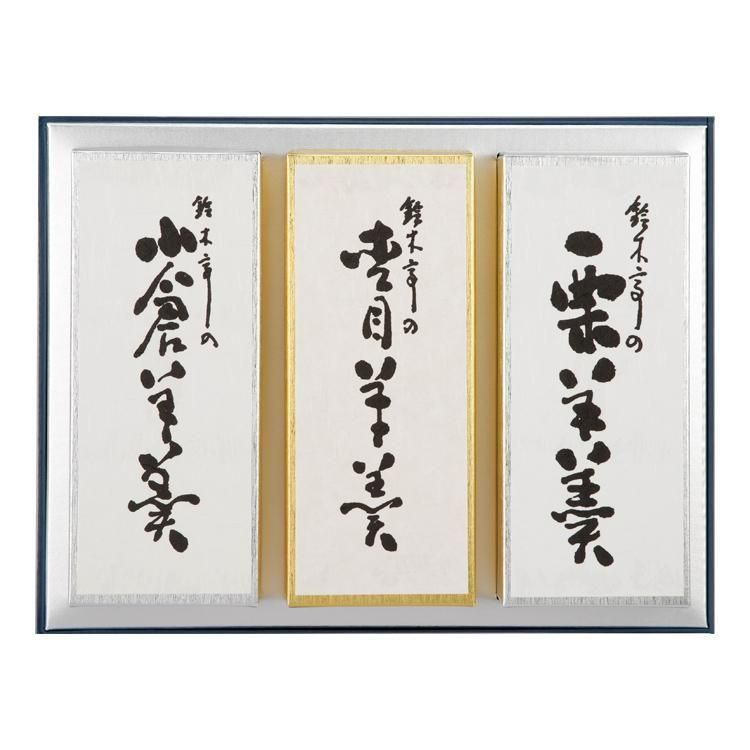 鈴木亭の
栗羊羹
鈴木亭の
杢目羊羹
鈴木亭の
小倉羊羹